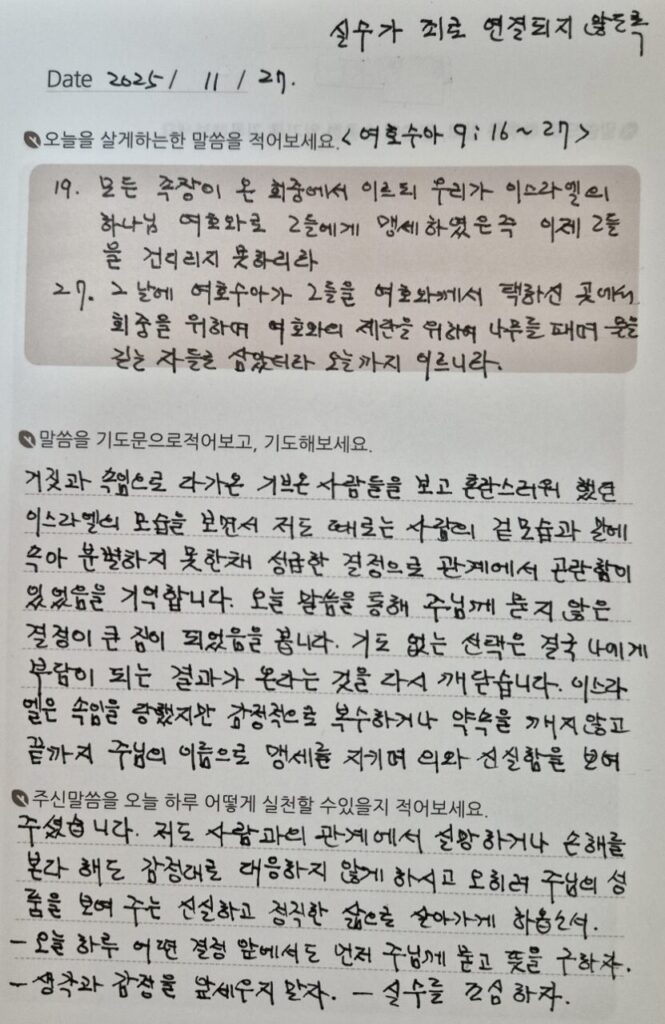 실수가 죄로 연결되지 않도록
Date 2025 / 11 / 27.
오늘을 살게하는한 말씀을 적어보세요. <여호수아 9:16~27>
19. 모든 족장이 온 회중에게 이르되 우리가 이스라엘의
하나님 여호와로 그들에게 맹세하였은즉 이제 그들
을 건드리지 못하리라
27. 그 날에 여호수아가 그들을 여호와께서 택하신 곳에서
회중을 위하며 여호와의 제단을 위하여 나무를 패며 물을
긷는 자들로 삼았더라 오늘까지 이르니라.
말씀을 기도문으로적어보고, 기도해보세요.
거짓과 속임으로 다가온 기브온 사람들을 보고 혼란스러워 했던
이스라엘의 모습을 보면서 저도 때로는 사람의 겉모습과 말에
속아 분별하지 못한채 성급한 결정으로 관계에서 곤란함이
있었음을 기억합니다. 오늘 말씀을 통해 주님께 묻지 않은
결정이 큰 짐이 되었음을 봅니다. 기도 없는 선택은 결국 나에게
부담이 되는 결과가 온다는 것을 다시 깨닫습니다. 이스라
엘은 속임을 당했지만 감정적으로 복수하거나 약속을 깨지않고
끝까지 주님의 이름으로 맹세를 지키며 의와 신실함을 보여
주신말씀을 오늘 하루 어떻게 실천할 수있을지 적어보세요.
주셨습니다. 저도 사람과의 관계에서 실망하거나 손해를
본다 해도 감정대로 대응하지 않게 하시고 오히려 주님의 성
품을 보여 주는 신실하고 정직한 삶으로 살아가게 하옵소서.
- 오늘 하루 어떤 결정 앞에서도 먼저 주님께 묻고 뜻을 구하자.
- 생각과 감정을 앞세우지 말자. - 실수를 조심하자.